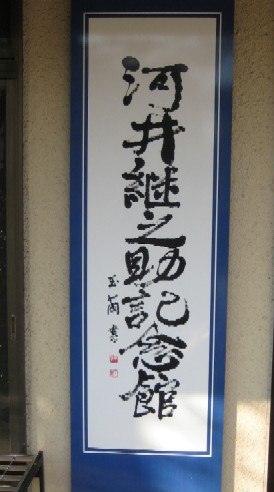 河井継之助記念館
玉蘭書